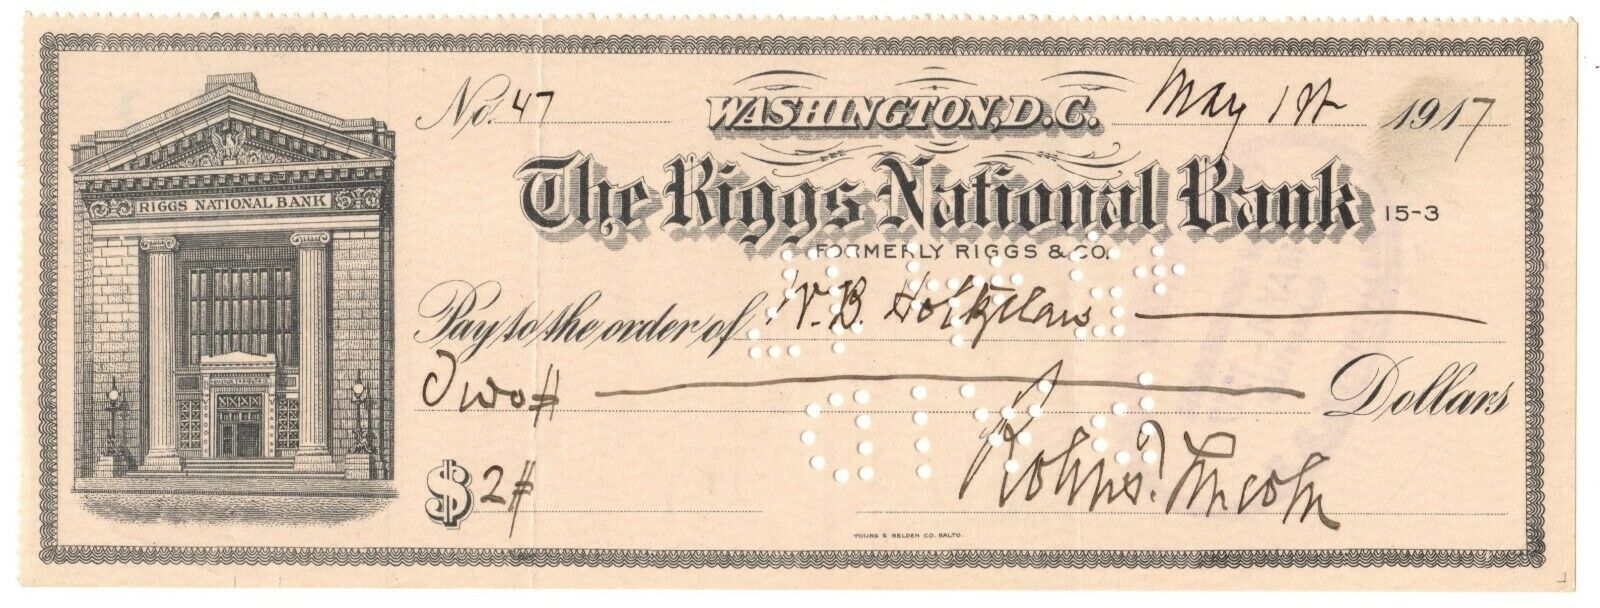 No. 47
WASHINGTON, D.C. May 1st 1917
The Riggs National Bank 15-3
FORMERLY RIGGS & CO.
RIGGS NATIONAL BANK
Pay to the order of W. B. Holtzclaw
Two # Dollars
$2#
Robert T. Lincoln
YOUNG & SELDEN CO. BALTO.
PAID